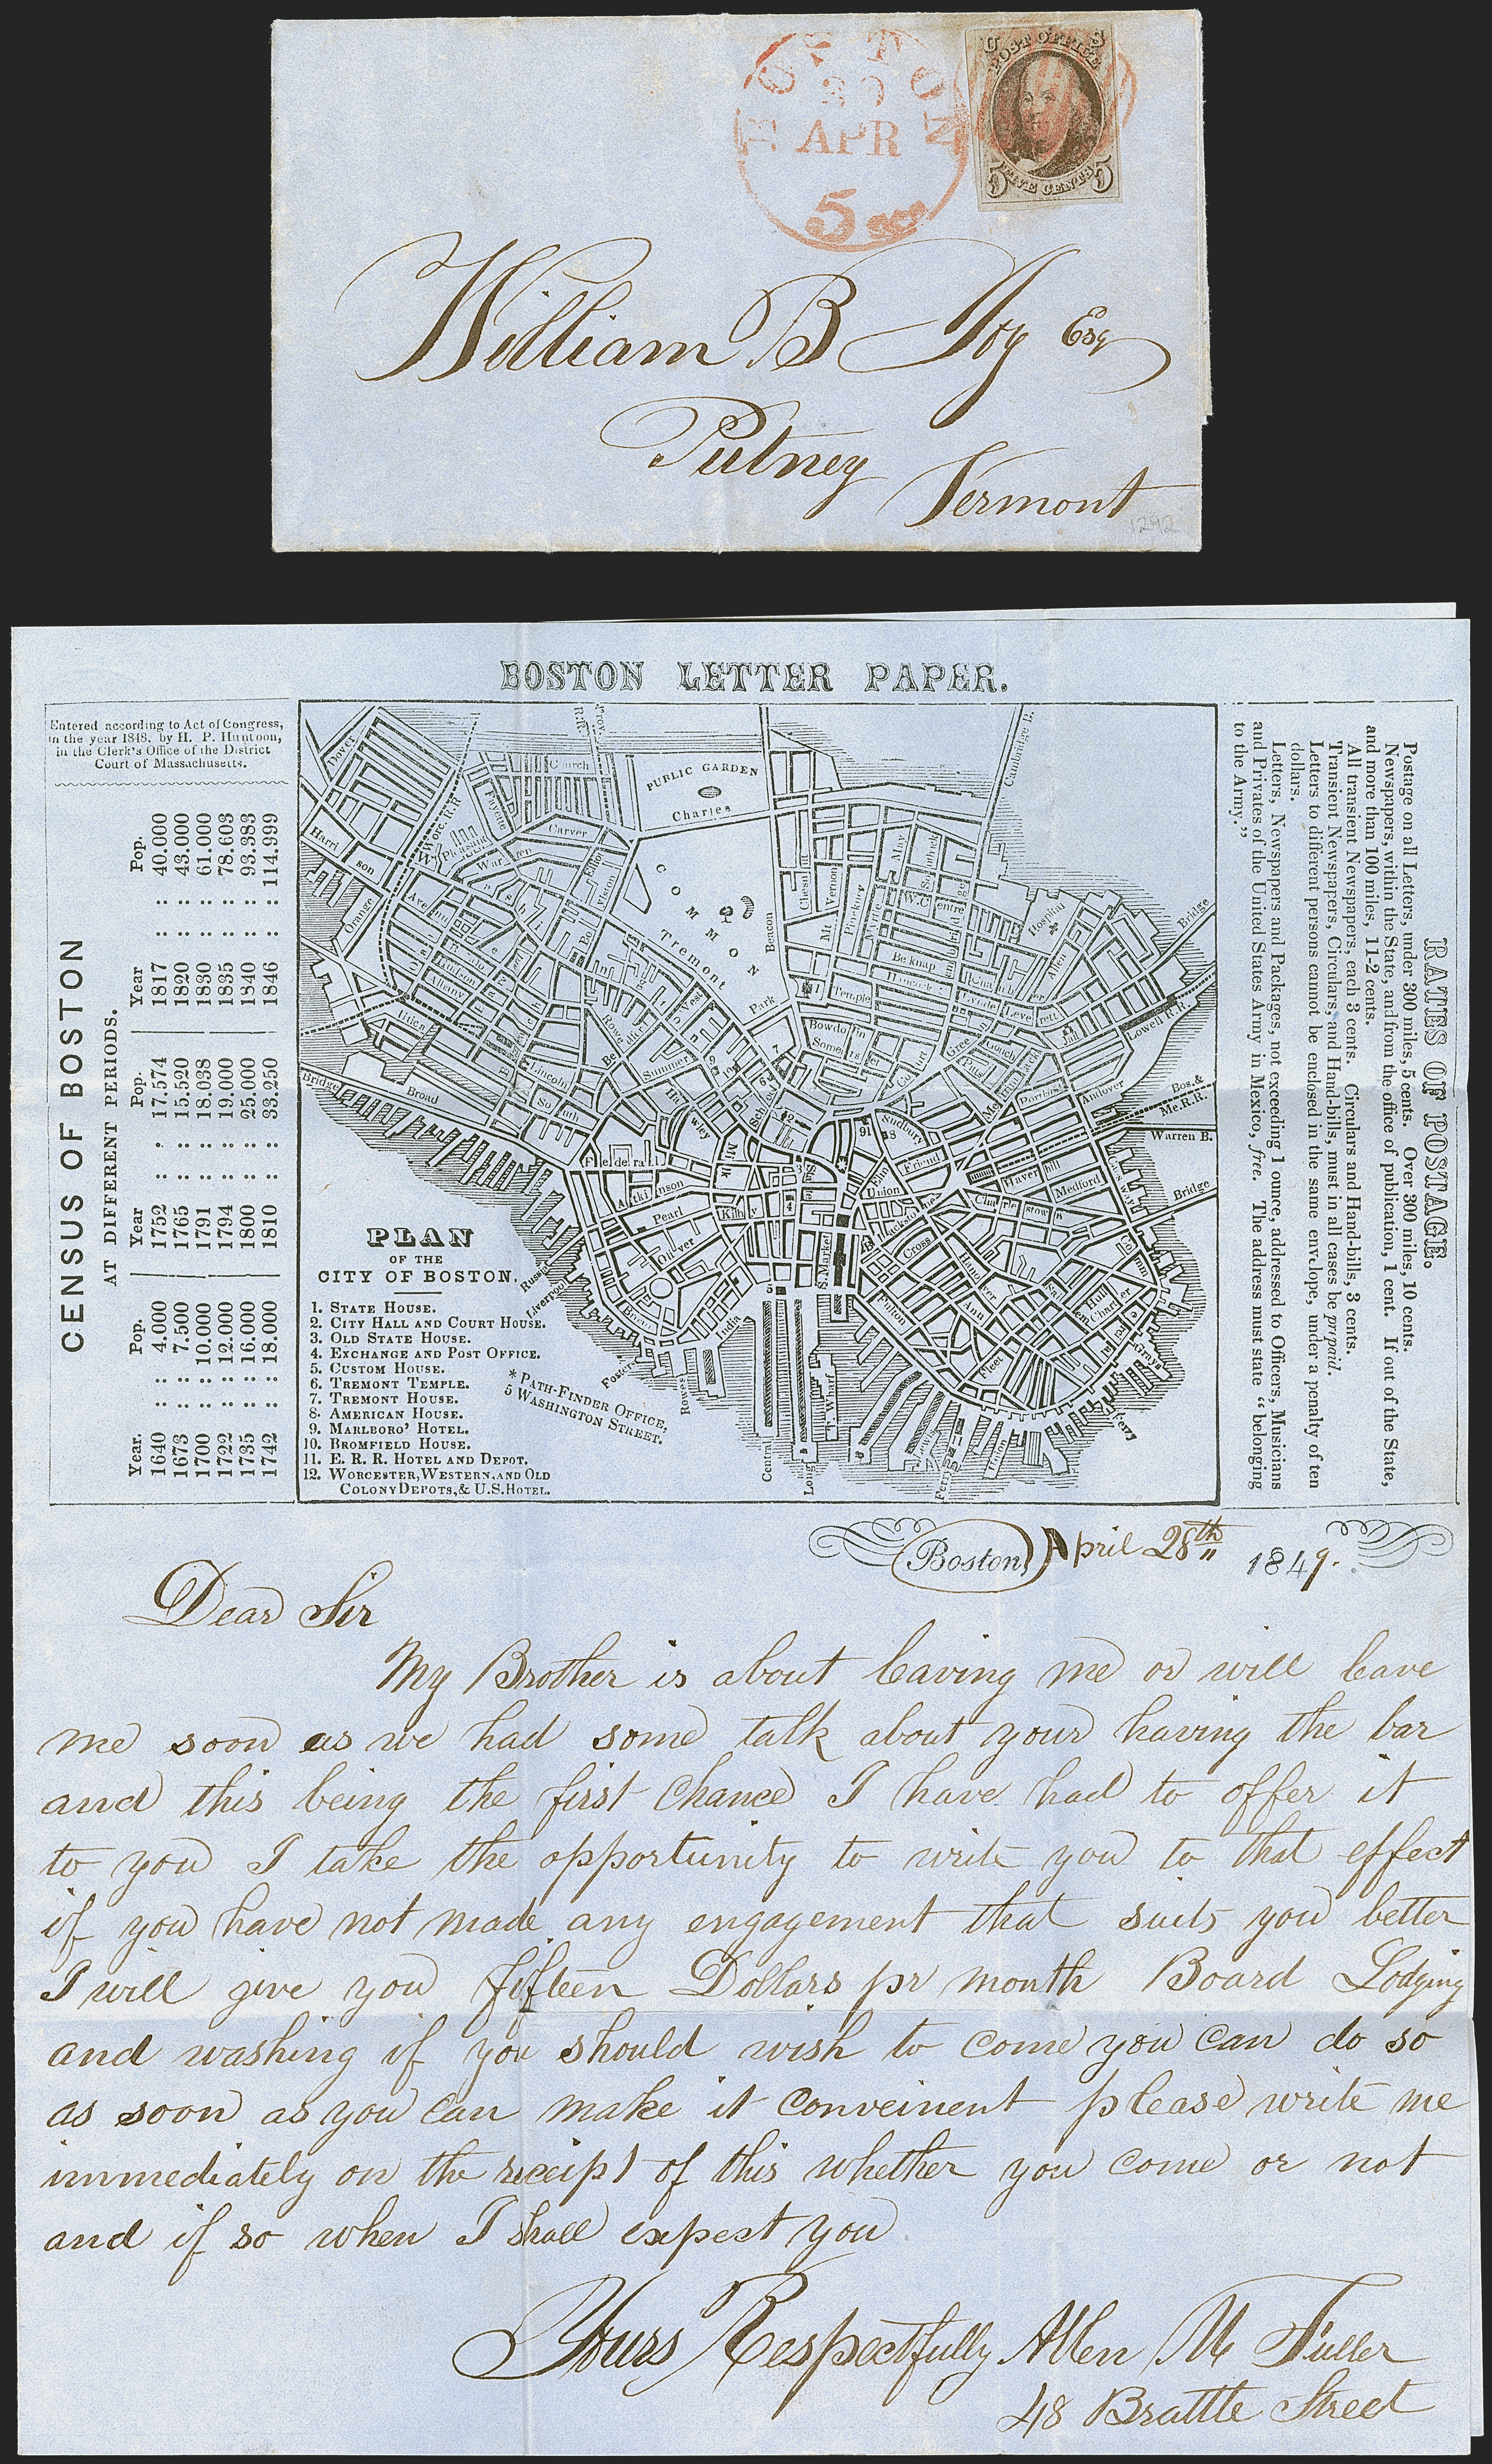 BOSTON
30
APR
5 cts
U S
POST OFFICE
5 FIVE CENTS 5
William B Joy Esq
Putney
Vermont
1292
BOSTON LETTER PAPER.
Entered according to Act of Congress,
in the year 1848, by H. P. Huntoon,
in the Clerk's Office of the District
Court of Massachusetts.
CENSUS OF BOSTON
AT DIFFERENT PERIODS.
Year. Pop. Year Pop. Year Pop.
1640 :: :: 4.000 1752 :: :: 17.574 1817 :: :: 40.000
1673 :: :: 7.500 1765 :: :: 15.520 1820 :: :: 43.000
1700 :: :: 10.000 1791 :: :: 18.038 1830 :: :: 61.000
1722 :: :: 12.000 1794 :: :: 19.000 1835 :: :: 78.603
1735 :: :: 16.000 1800 :: :: 25.000 1840 :: :: 93.383
1742 :: :: 18.000 1810 :: :: 33.250 1846 :: :: 114.999
PUBLIC GARDEN
Charles
Church
Dover
Worc. R.R
Cambridge B.
Carver
Pleasant
Warren
Fayette
Elliot
Harrison
Orange
COMMON
Tremont
Beacon
Chesnut
Mt Vernon
Pinckney
Myrtle
May
W. Centre
Hospital
Allen
Bridge
Belknap
Hudson
Albany
Utica
Lincoln
South
Summer
West
Park
Temple
Bowdoin
Somerset
Leverett
Jail
Lowell R.R.
Gouch
Portland
Andover
Bos.&
Me.R.R.
Warren B.
Bridge
Broad
Hawley
Milk
School
State
Sudbury
Friend
Elm
Union
Haverhill
Medford
Charlestown
Bridge
Federal
Atkinson
Pearl
Kilby
Oliver
S. Market
Cross
Hanover
Ann
Salem
Hull
Charter
Fulton
Fleet
Russia
Liverpool
Broad
India
Fosters
Rowes
Central
Long
T Wharf
Lewis
Ferry
Union
Grays
Ferry
PLAN
OF THE
CITY OF BOSTON.
1. STATE HOUSE.
2. CITY HALL AND COURT HOUSE.
3. OLD STATE HOUSE.
4. EXCHANGE AND POST OFFICE.
5. CUSTOM HOUSE.
6. TREMONT TEMPLE.
7. TREMONT HOUSE.
8. AMERICAN HOUSE.
9. MARLBORO' HOTEL.
10. BROMFIELD HOUSE.
11. E. R. R. HOTEL AND DEPOT.
12. WORCESTER, WESTERN, AND OLD
COLONY DEPOTS, & U.S. HOTEL.
* PATH-FINDER OFFICE,
5 WASHINGTON STREET.
RATES OF POSTAGE.
Postage on all Letters, under 300 miles, 5 cents. Over 300 miles, 10 cents.
Newspapers, within the State, and from the office of publication, 1 cent. If out of the State,
and more than 100 miles, 1 1-2 cents.
All transient Newspapers, each 3 cents. Circulars and Hand-bills, 3 cents.
Transient Newspapers, Circulars, and Hand-bills, must in all cases be prepaid.
Letters to different persons cannot be enclosed in the same envelope, under a penalty of ten
dollars.
Letters, Newspapers and Packages, not exceeding 1 ounce, addressed to Officers, Musicians
and Privates of the United States Army in Mexico, free. The address must state “belonging
to the Army.”
Boston, April 28th 1849.
Dear Sir
My Brother is about leaving me or will leave
me soon as we had some talk about your having the bar
and this being the first chance I have had to offer it
to you I take the opportunity to write you to that effect
if you have not made any engagement that suits you better
I will give you fifteen Dollars pr month Board Lodging
and washing if you should wish to come you can do so
as soon as you can make it conveinent please write me
immediately on the receipt of this whether you come or not
and if so when I shall expect you
Yours Respectfully Allen M Fuller
48 Brattle Street